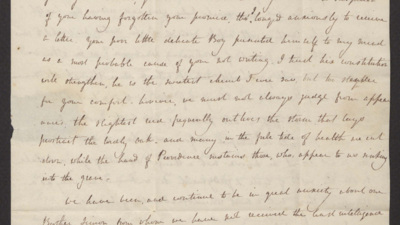 of your having forgotten your promise, tho' I long'd anxiously to receive
a letter your poor little delicate Boy presented himself to my mind
as a most probable cause of your not writing. I trust his constitution
will strengthen, he is the sweetest I ever saw, but
for your comfort. however, we must not always judge from appear
ance the slightest reed frequently outlives the storm that lays
prostrate the lordly oak, and many in the full tide of health are cut
down, while the hand of Providence sustains those, who appear to us sinking
into the grave.
We have been, and continue to be in great anxiety about our
Brother Simon from whom we have not received the least intelligence